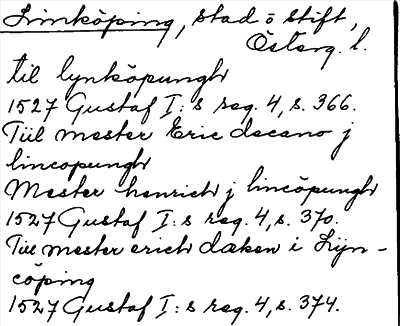 Linköping, stad o stift,
Österg. l.
til lynköpungh
1527 Gustaf I:s reg. 4, s. 366.
Tiil mester Eric decano j
lincopungh
Mester henrich j lincöpungh
1527 Gustaf I:s reg. 4, s. 370.
Til mester erich dæken i Liyn-
cöping
1527 Gustaf I:s reg. 4, s. 374.